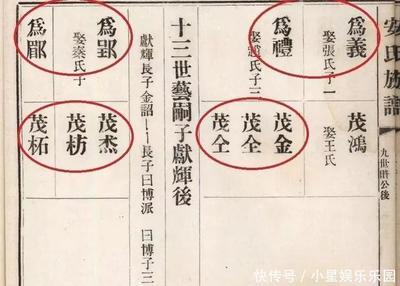 安氏族譜
爲義
娶張氏子一
爲禮
娶趙氏子三
茂鴻
娶王氏
茂金
茂全
茂仝
十三世藝嗣子獻輝後
獻輝長子金詔——長子曰博派 曰博子三
爲郢
娶秦氏子
爲郿
茂杰
茂枋
茂柘
快传号/小星娱乐乐园